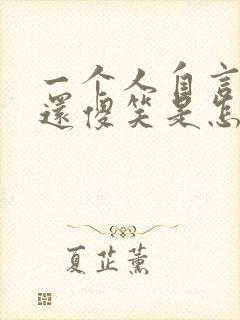 一个人自言
還傻笑是怎
夏芷薰